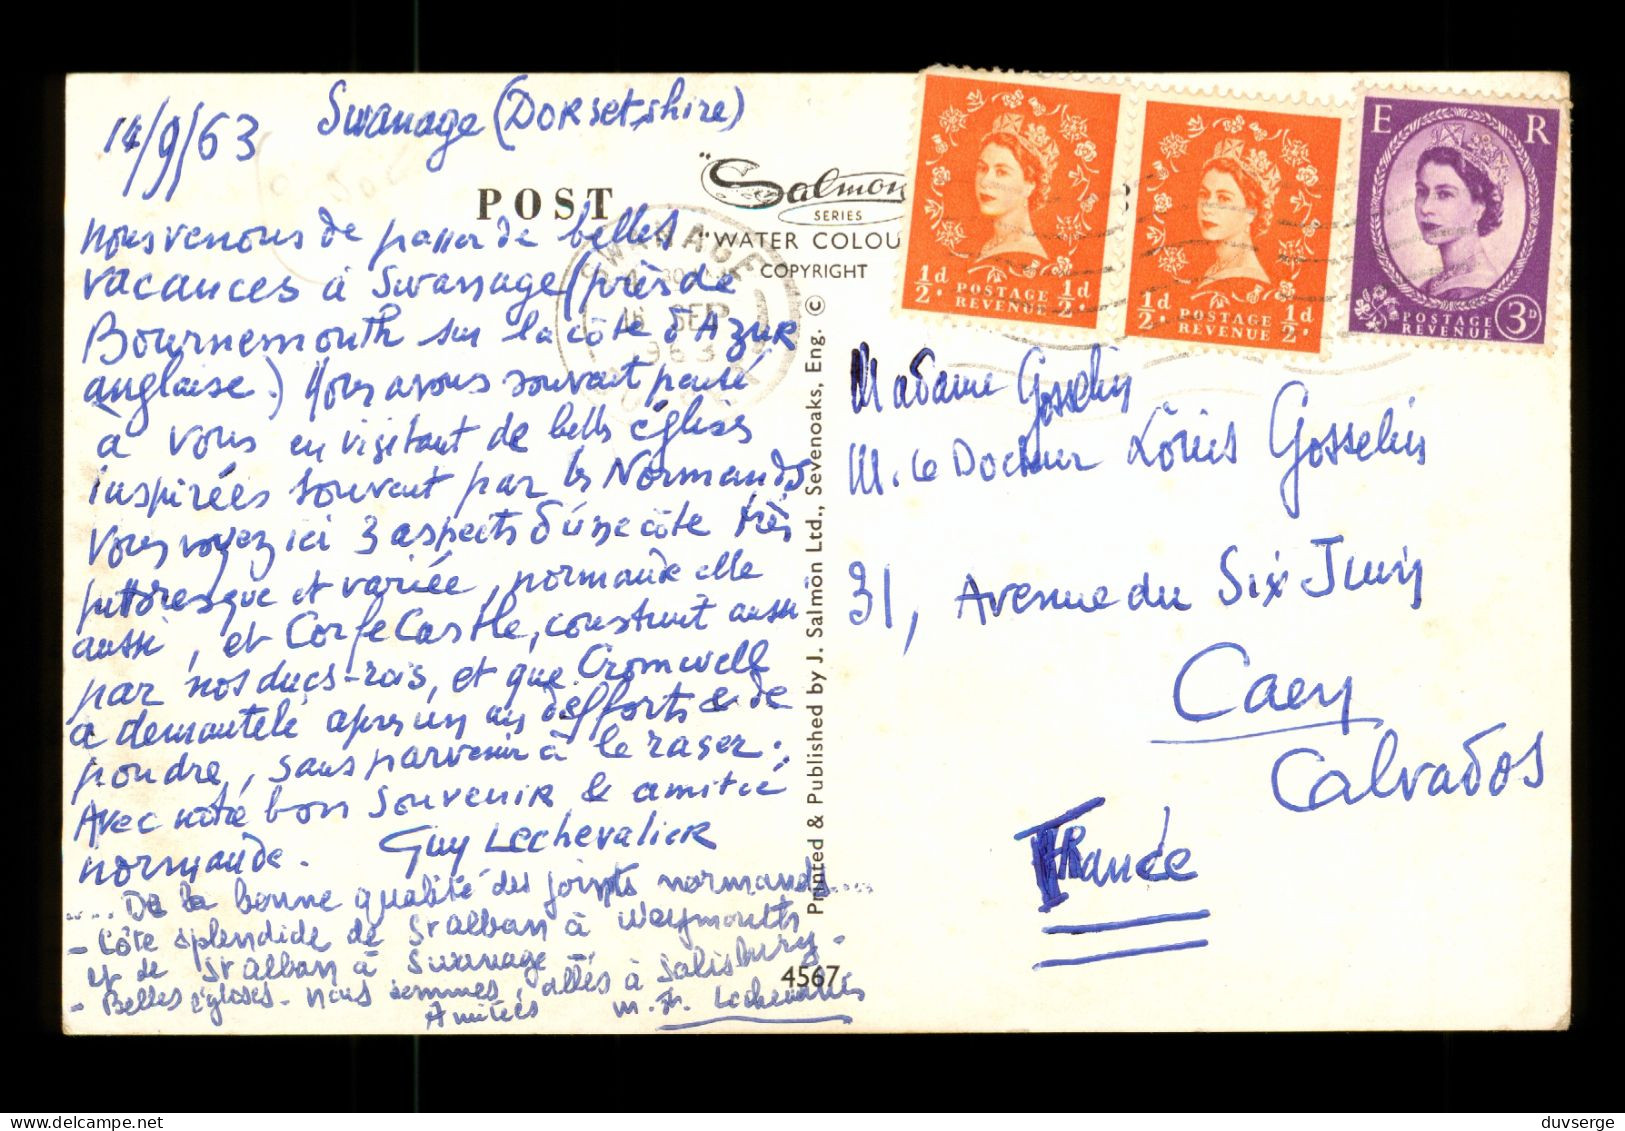 14/9/63 Swanage (Dorsetshire)
POST
"Salmon
SERIES
"WATER COLOU
COPYRIGHT
SWANAGE
16 SEP
1963
DORSET
nous venons de passer de belles
vacances à Swanage (près de
Bournemouth sur la côte d'Azur
anglaise.) Nous avons souvent pensé
à vous en visitant de belles églises
inspirées souvent par les Normands
Vous voyez ici 3 aspects d'une côte très
pittoresque et variée, normande elle
aussi, et Corfe Castle, construit aussi
par nos ducs-rois, et que Cromwell
a démantelé après un an d'efforts & de
poudre, sans parvenir à le raser.
Avec notre bon souvenir & amitié
normande. Guy Lechevalier
.... De la bonne qualité des joints normands ....
- Côte splendide de St Alban à Weymouth
et de St Alban à Swanage -
- Belles églises - nous sommes allés à Salisbury -
Amitiés M. Lechevalier
Printed & Published by J. Salmon Ltd., Sevenoaks, Eng. ©
4567
1/2d. POSTAGE REVENUE 1/2d.
1/2d. POSTAGE REVENUE 1/2d.
E R
POSTAGE REVENUE 3D
Madame Gosselin
M. le Docteur Louis Gosselin
31, Avenue du Six Juin
Caen
Calvados
France
duvserge